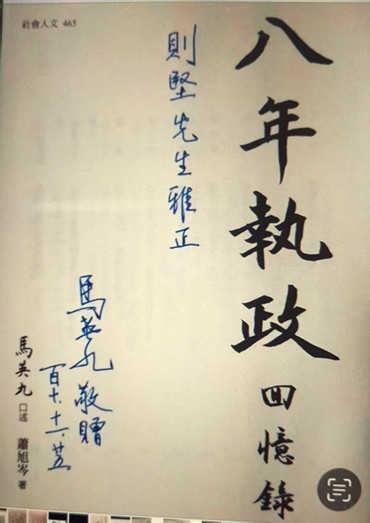 社會人文 465
八年執政
回憶錄
則堅先生雅正
馬英九敬贈
百十.十一.廿五
馬英九 口述 蕭旭岑 著